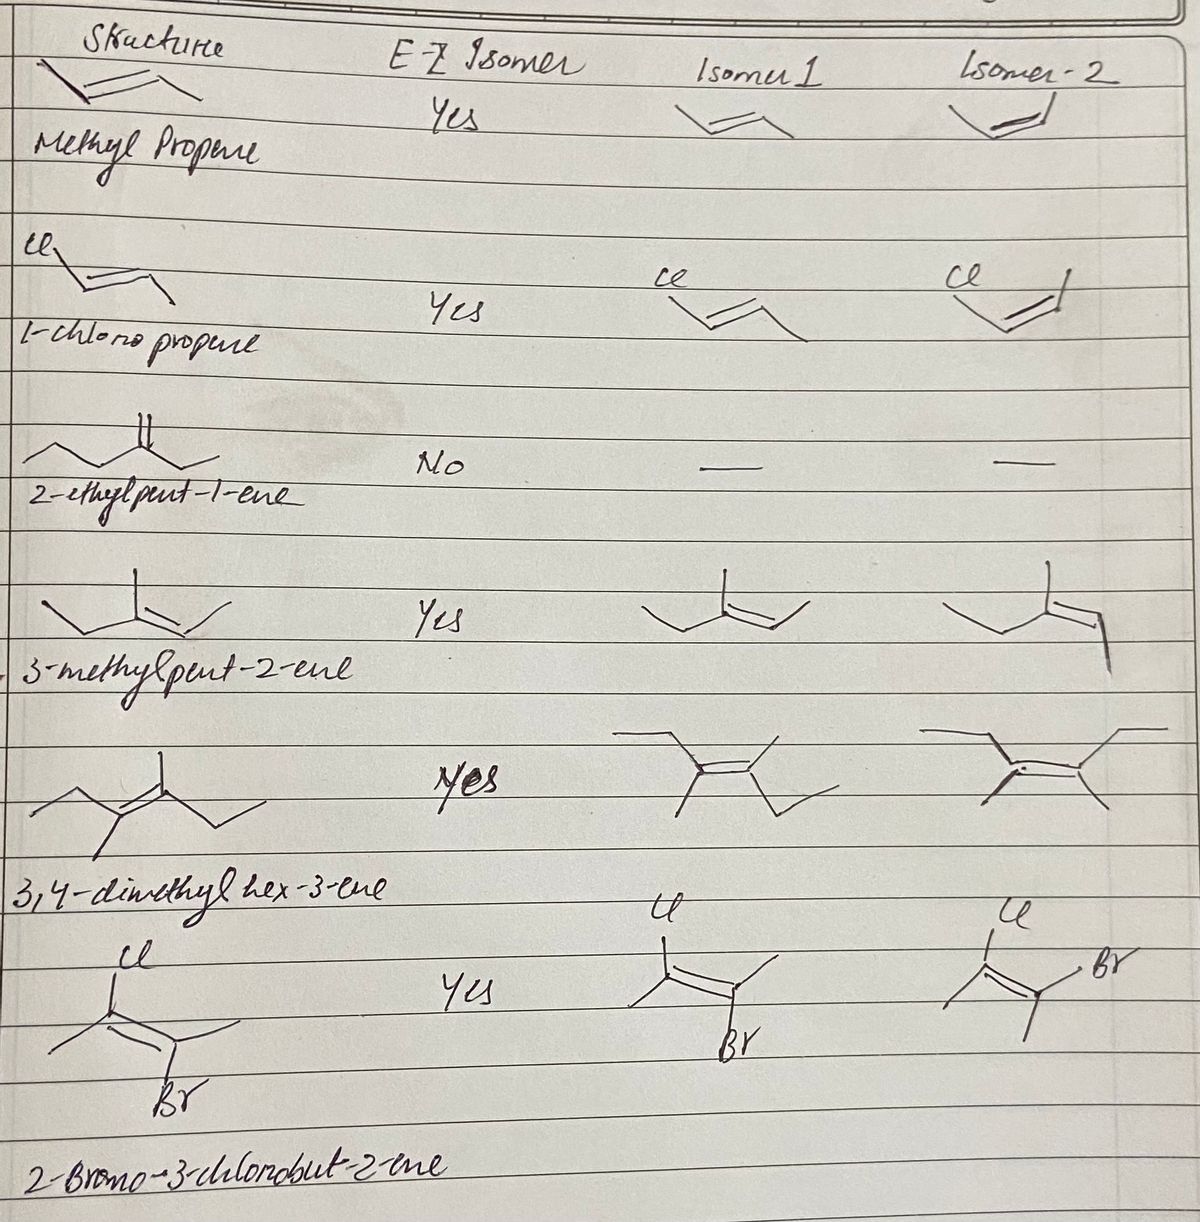 Structure E-Z Isomer Isomer 1 Isomer-2
Yes
Methyl Propene
Cl Cl Cl
Yes
1-chloro propene
No — —
2-ethylpent-1-ene
Yes
3-methylpent-2-ene
Yes
3,4-dimethyl hex-3-ene
Cl Cl Cl
Yes Br
Br Br
2-Bromo-3-chlorobut-2-ene